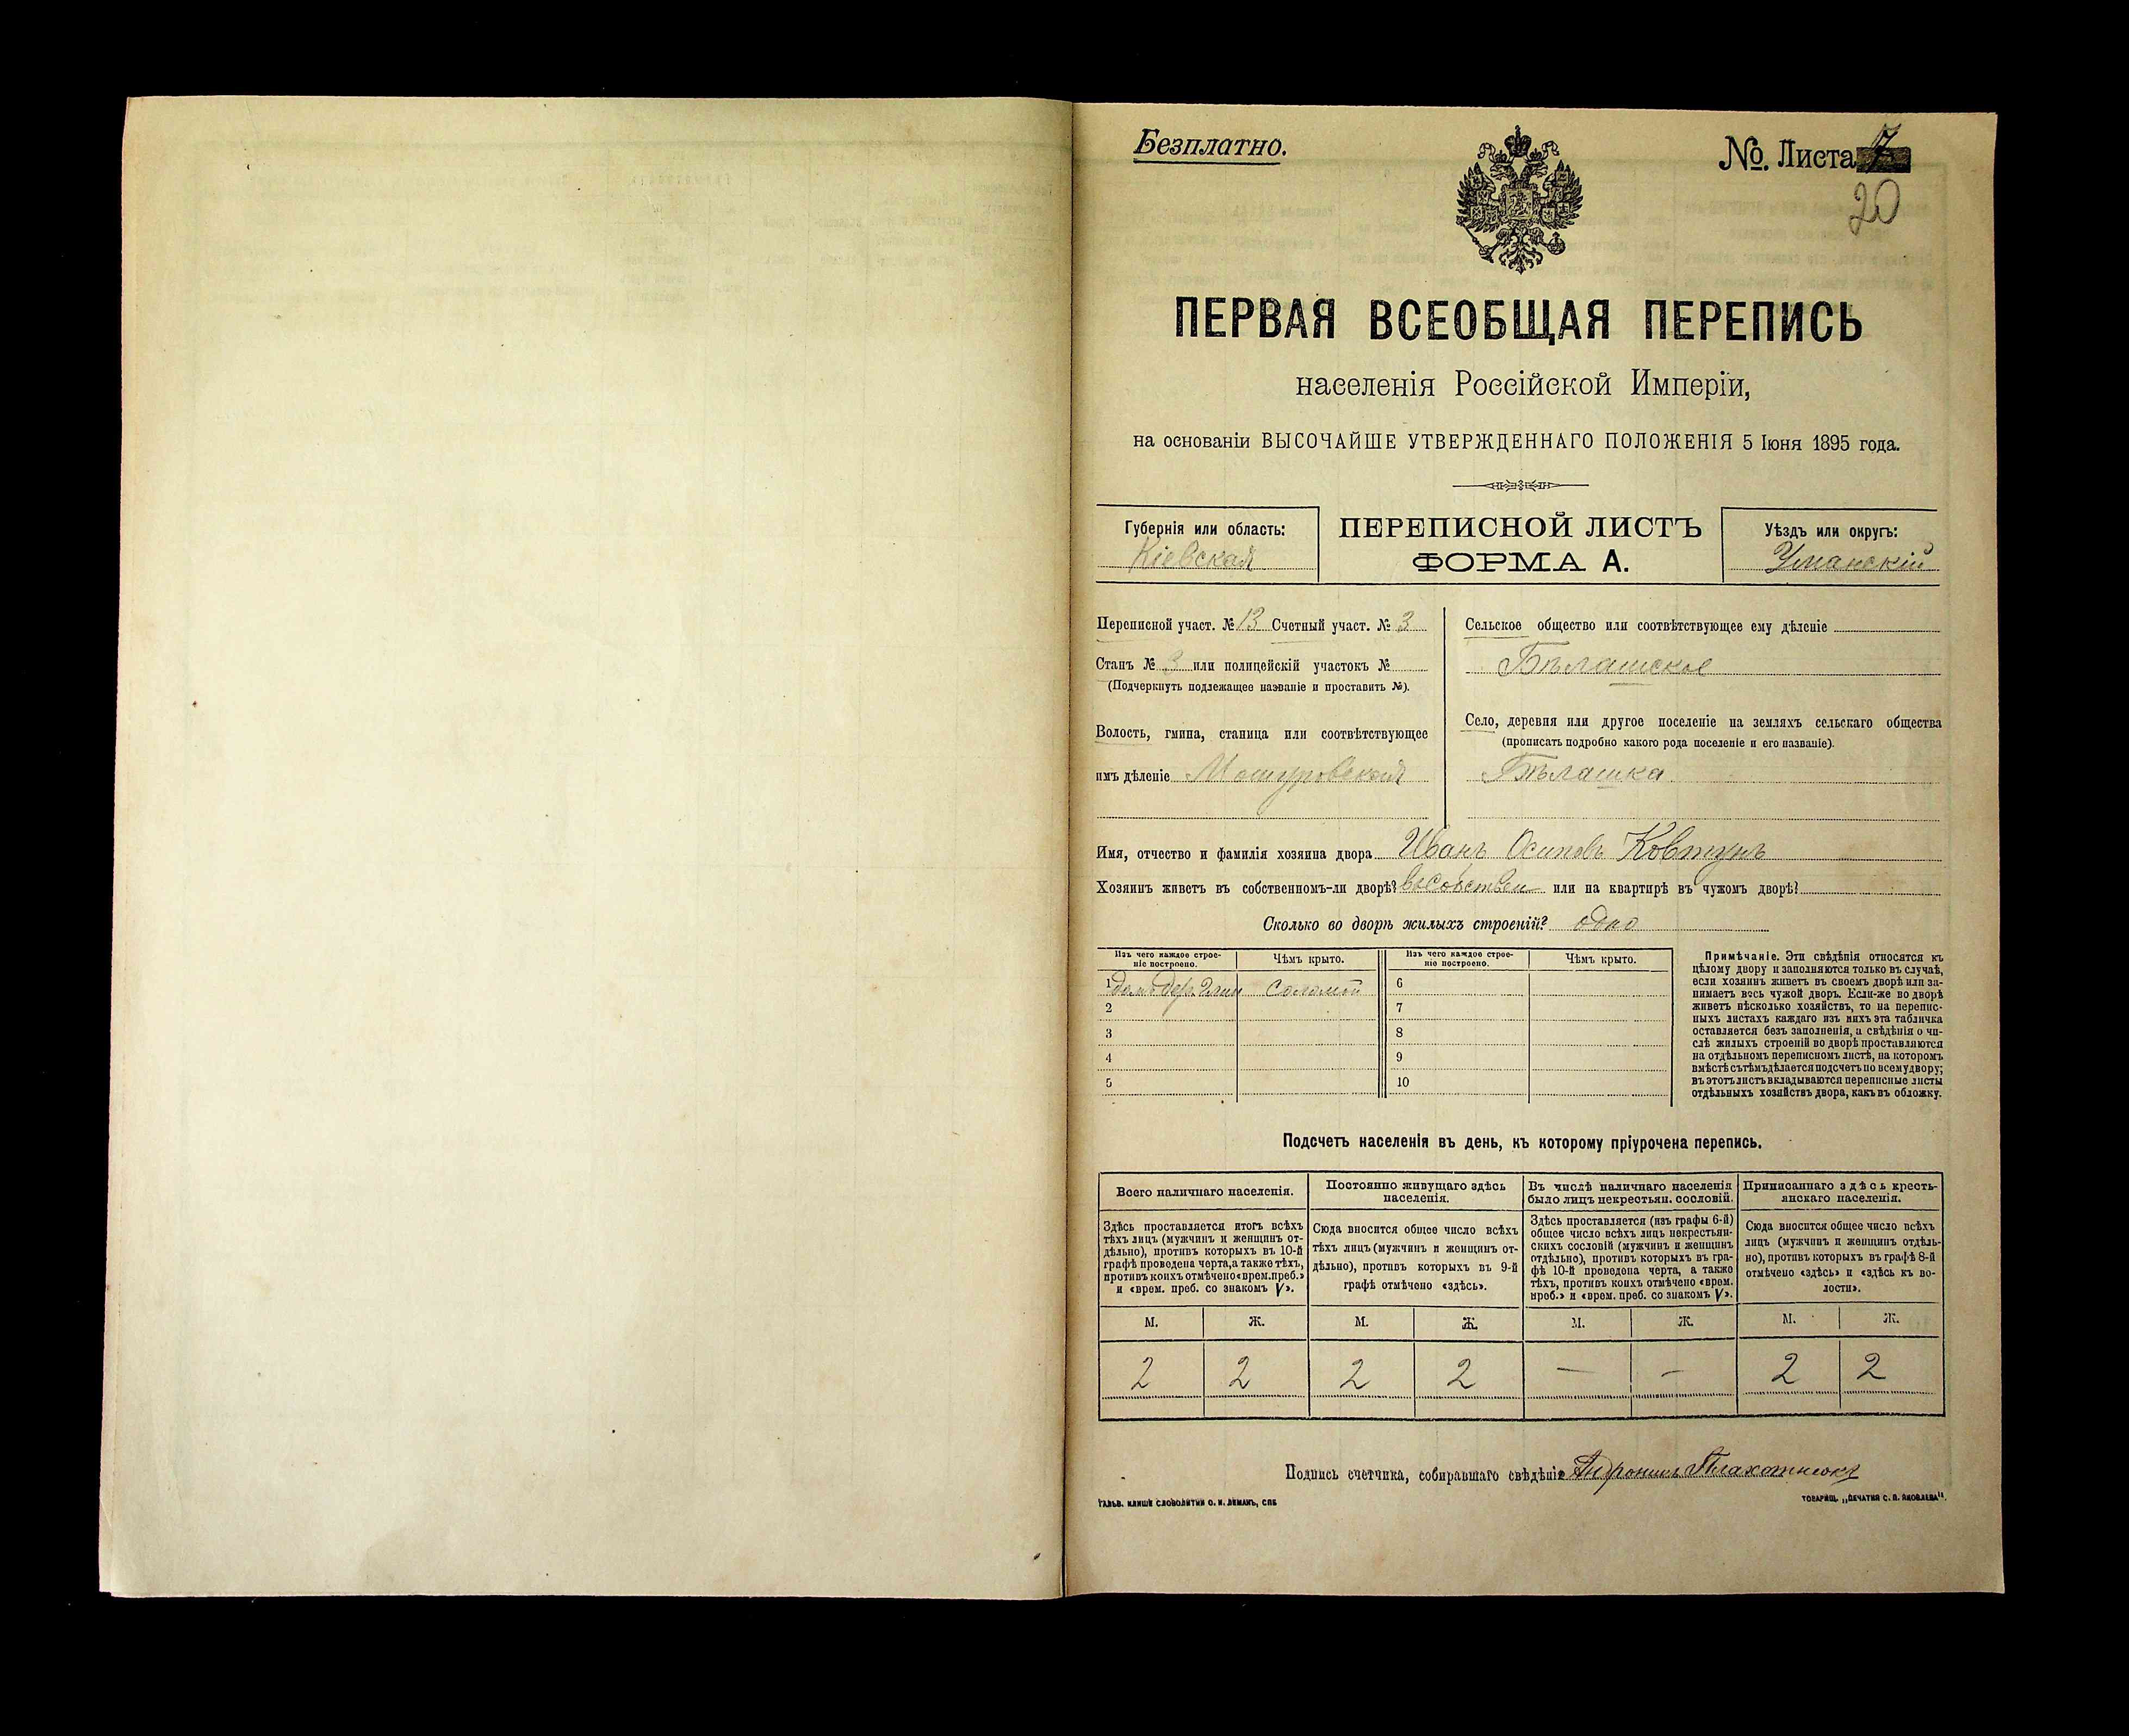 Безплатно.
№. Листа 7
20
ПЕРВАЯ ВСЕОБЩАЯ ПЕРЕПИСЬ
населенія Россійской Имперіи,
на основаніи ВЫСОЧАЙШЕ УТВЕРЖДЕННАГО ПОЛОЖЕНІЯ 5 Іюня 1895 года.
Губернія или область:
Кіевская
ПЕРЕПИСНОЙ ЛИСТЪ
ФОРМА А.
Уѣздъ или округъ:
Уманскій
Переписной участ. № 13 Счетный участ. № 3
Станъ № 3 или полицейскій участокъ №
(Подчеркнуть подлежащее названіе и проставить №).
Волость, гмина, станица или соотвѣтствующее
имъ дѣленіе Машуровская
Сельское общество или соотвѣтствующее ему дѣленіе
Бѣлашское
Село, деревня или другое поселеніе на земляхъ сельскаго общества
(прописать подробно какого рода поселеніе и его названіе).
Бѣлашка
Имя, отчество и фамилія хозяина двора Иванъ Осиповъ Ковтунъ
Хозяинъ живетъ въ собственномъ-ли дворѣ? въ собствен или на квартирѣ въ чужомъ дворѣ?
Сколько во дворѣ жилыхъ строеній? одно
Изъ чего каждое строе-
ніе построено.
Чѣмъ крыто.
Изъ чего каждое строе-
ніе построено.
Чѣмъ крыто.
1 домъ дер. глин Соломой 6
2 7
3 8
4 9
5 10
Примѣчаніе. Эти свѣдѣнія относятся къ
цѣлому двору и заполняются только въ случаѣ,
если хозяинъ живетъ въ своемъ дворѣ или за-
нимаетъ весь чужой дворъ. Если-же во дворѣ
живетъ нѣсколько хозяйствъ, то на перепис-
ныхъ листахъ каждаго изъ нихъ эта табличка
оставляется безъ заполненія, а свѣдѣнія о чи-
слѣ жилыхъ строеній во дворѣ проставляются
на отдѣльномъ переписномъ листѣ, на которомъ
вмѣстѣ съ тѣмъ дѣлается подсчетъ по всему двору;
въ этотъ листъ вкладываются переписные листы
отдѣльныхъ хозяйствъ двора, какъ въ обложку.
Подсчетъ населенія въ день, къ которому пріурочена перепись.
Всего наличнаго населенія.
Здѣсь проставляется итогъ всѣхъ
тѣхъ лицъ (мужчинъ и женщинъ от-
дѣльно), противъ которыхъ въ 10-й
графѣ проведена черта, а также тѣхъ,
противъ коихъ отмѣчено «врем. преб.»
и «врем. преб. со знакомъ V».
Постоянно живущаго здѣсь
населенія.
Сюда вносится общее число всѣхъ
тѣхъ лицъ (мужчинъ и женщинъ от-
дѣльно), противъ которыхъ въ 9-й
графѣ отмѣчено «здѣсь».
Въ числѣ наличнаго населенія
было лицъ некрестьян. сословій.
Здѣсь проставляется (изъ графы 6-й)
общее число всѣхъ лицъ некрестьян-
скихъ сословій (мужчинъ и женщинъ
отдѣльно), противъ которыхъ въ гра-
фѣ 10-й проведена черта, а также
тѣхъ, противъ коихъ отмѣчено «врем.
преб.» и «врем. преб. со знакомъ V».
Приписаннаго здѣсь кресть-
янскаго населенія.
Сюда вносится общее число всѣхъ
лицъ (мужчинъ и женщинъ отдѣль-
но), противъ которыхъ въ графѣ 8-й
отмѣчено «здѣсь» и «здѣсь къ во-
лости».
М. Ж. М. Ж. М. Ж. М. Ж.
2 2 2 2 — — 2 2
Подпись счетчика, собиравшаго свѣдѣнія Андроникъ Плахотнюкъ
ГАЛЬВ. КЛИШЕ СЛОВОЛИТНИ О. И. ЛЕМАНЪ, СПБ
ТОВАРИЩ. „ПЕЧАТНЯ С. П. ЯКОВЛЕВА".